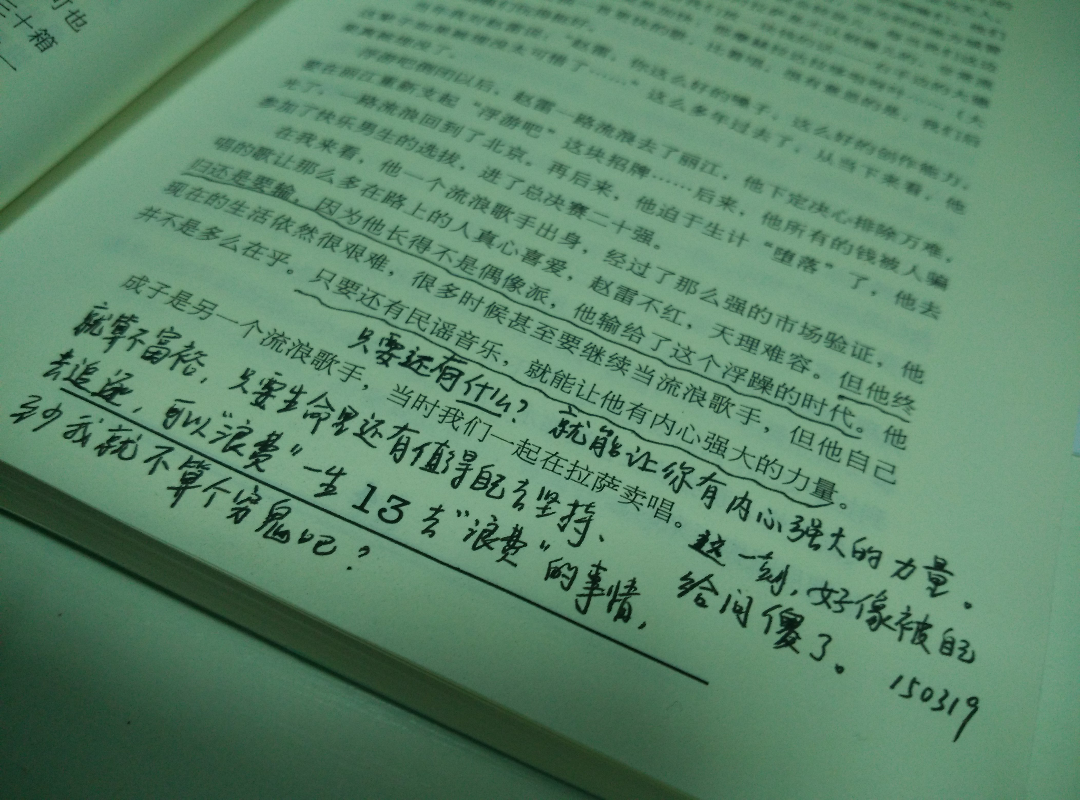 可也
三十箱
当年我对赵雷说，“赵雷，你这么好的嗓子，这么好的创作能力，
浮游吧倒闭以后，赵雷一路流浪去了丽江，他下定决心排除万难，
要在丽江重新支起“浮游吧”这块招牌……后来，他所有的钱被人骗
光了，一路流浪回到了北京。再后来，他迫于生计“堕落”了，他去
参加了快乐男生的选拔，进了总决赛二十强。
在我来看，他一个流浪歌手出身，经过了那么强的市场验证，他
唱的歌让那么多在路上的人真心喜爱，赵雷不红，天理难容。但他终
归还是要输，因为他长得不是偶像派，他输给了这个浮躁的时代。他
现在的生活依然很艰难，很多时候甚至要继续当流浪歌手，但他自己
并不是多么在乎。只要还有民谣音乐，就能让他有内心强大的力量。
成子是另一个流浪歌手，当时我们一起在拉萨卖唱。
只要还有什么？就能让你有内心强大的力量。
这一刻，好像被自己
给问傻了。
150319
就算不富裕，只要生命里还有值得自己去坚持、
去追逐，可以“浪费”一生去“浪费”的事情，
至少我就不算个穷鬼吧？
13